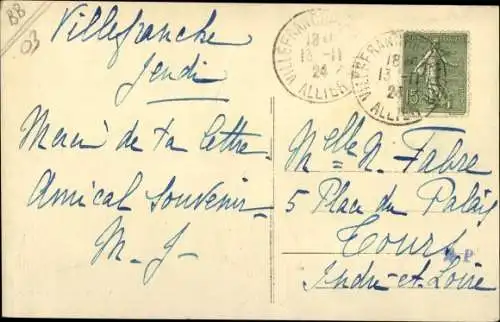 BB
03
Villefranche
Jeudi
Merci de ta lettre
Amical Souvenir
M. J.
VILLEFRANCHE
18
13-11
24
ALLIER
VILLEFRANCHE
18
13-11
24
ALLIER
15
Melle N. Fabre
5 Place du Palais
Tours
Indre-et-Loire